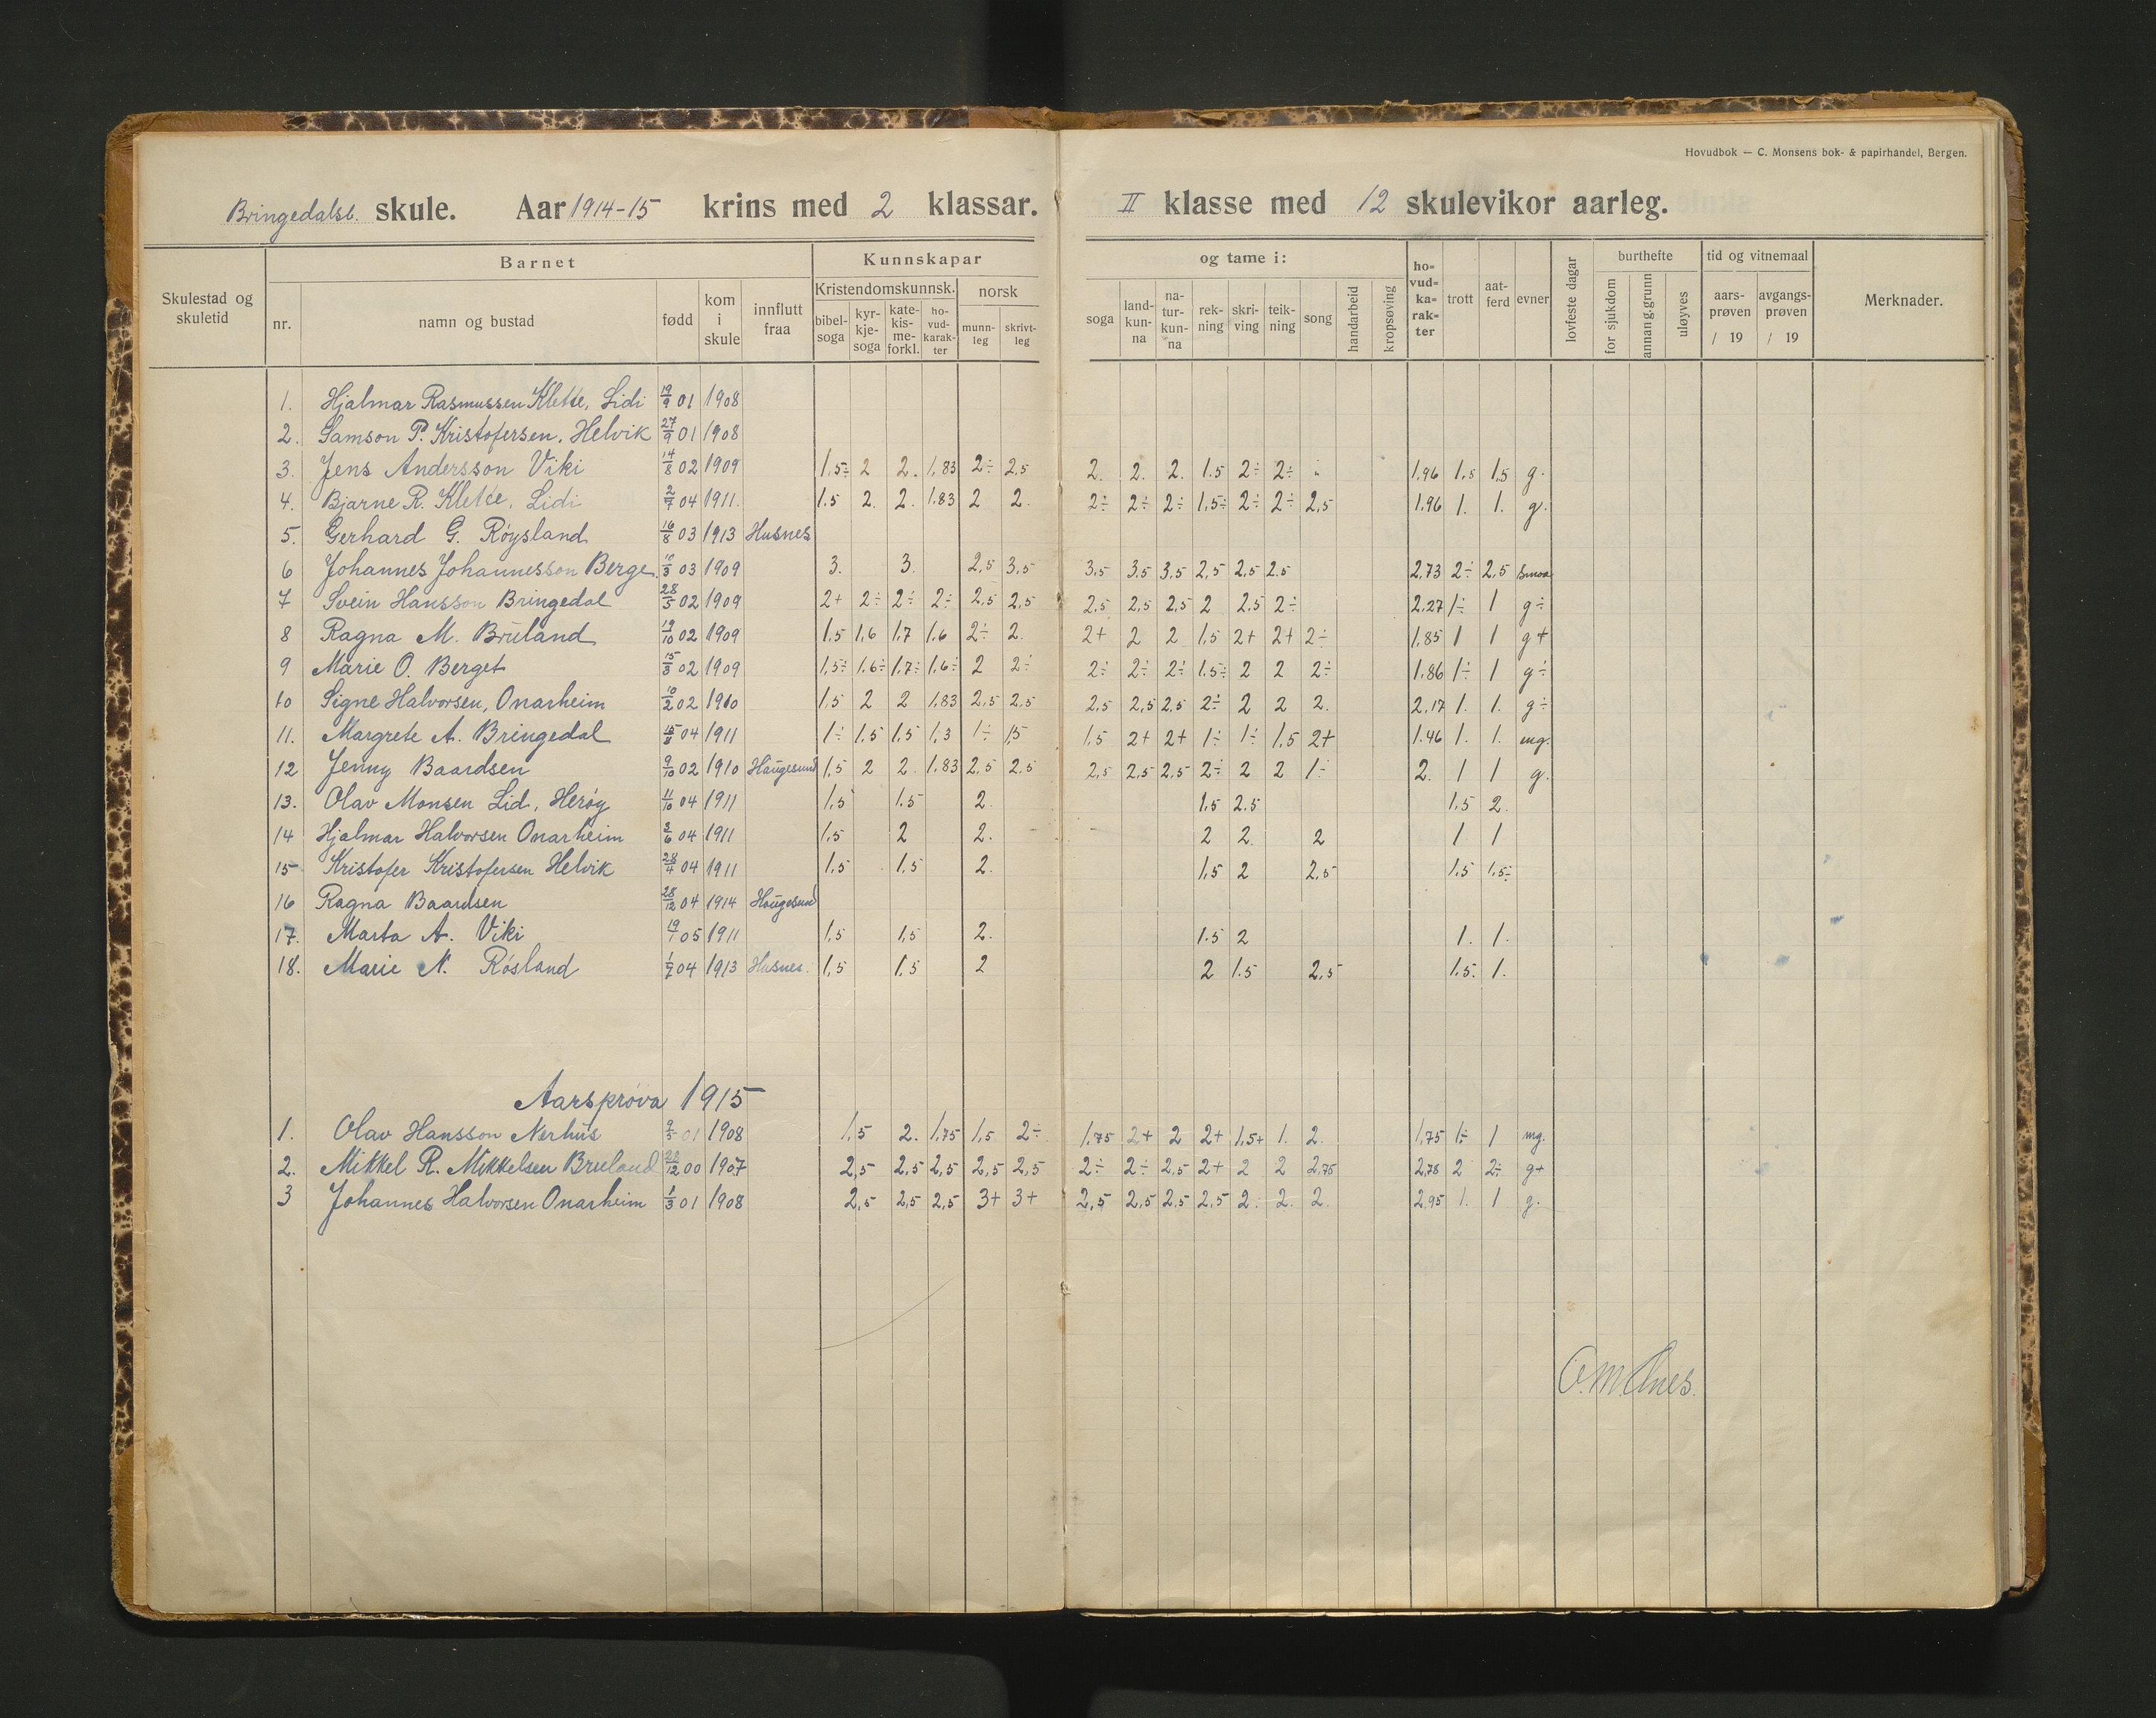 Hovudbok — C. Monsens bok- & papirhandel, Bergen.
Bringedalsb. skule. Aar 1914-15 krins med 2 klassar. II klasse med 12 skulevikor aarleg.
Skulestad og skuletid
Barnet
nr. namn og bustad fødd kom i skule innflutt fraa
Kunnskapar og tame i:
Kristendomskunnsk. norsk
bibel-soga kyr-kje-soga kate-kis-me-forkl. ho-vud-karak-ter munn-leg skrivt-leg
soga land-kun-na na-tur-kun-na rek-ning skri-ving teik-ning song handarbeid kropsøving
ho-vud-ka-rak-ter trott aat-ferd evner lovfeste dagar
burthefte
for sjukdom annan g. grunn uløyves
tid og vitnemaal
aars-prøven / 19 avgangs-prøven / 19
Merknader.
1. Hjalmar Rasmussen Klette, Lidi 19/9 01 1908
2. Samson P. Kristofersen, Helvik 27/9 01 1908
3. Jens Andersson Viki 14/8 02 1909 1,5÷ 2 2. 1,83 2÷ 2,5 2. 2. 2. 1.5 2÷ 2÷ 1,96 1,5 1,5 g.
4. Bjarne R. Klette, Lidi 2/7 04 1911. 1.5 2. 2. 1.83 2 2. 2÷ 2÷ 2÷ 1,5÷ 2÷ 2÷ 2,5 1.96 1. 1. g.
5. Gerhard G. Røysland 16/8 03 1913 Husnes
6 Johannes Johannesson Berge. 10/3 03 1909 3. 3. 2,5 3,5 3,5 3.5 3,5 2,5 2,5 2.5 2,73 2÷ 2,5 smaa
7 Svein Hansson Bringedal 28/5 02 1909 2+ 2÷ 2÷ 2÷ 2,5 2,5 2,5 2,5 2,5 2 2,5 2÷ 2,27 1÷ 1 g÷
8 Ragna M. Bruland 19/10 02 1909 1,5 1,6 1,7 1,6 2÷ 2. 2+ 2 2 1,5 2+ 2+ 2÷ 1,85 1 1 g+
9 Marie O. Berget 15/3 02 1909 1,5÷ 1,6÷ 1,7÷ 1,6÷ 2 2÷ 2÷ 2÷ 2÷ 1.5÷ 2 2 2÷ 1.86 1÷ 1 g÷
10 Signe Halvorsen, Onarheim 10/2 02 1910 1,5 2 2 1,83 2,5 2,5 2,5 2,5 2,5 2÷ 2 2 2. 2,17 1. 1. g÷
11. Margrete A. Bringedal 15/8 04 1911 1÷ 1.5 1,5 1,3 1÷ 1,5 1,5 2+ 2+ 1÷ 1÷ 1,5 2+ 1.46 1. 1. mg.
12 Jenny Baardsen 9/10 02 1910 Haugesund 1,5 2 2. 1.83 2,5 2.5 2,5 2,5 2,5 2÷ 2 2 1÷ 2. 1 1 g.
13. Olav Monsen Lid, Herøy 11/10 04 1911 1,5 1.5 2. 1.5 2.5 1.5 2.
14 Hjalmar Halvorsen Onarheim 3/6 04 1911 1,5 2 2. 2 2. 2 1 1
15 Kristofer Kristofersen Helvik 28/4 04 1911 1,5 1,5 2. 1,5 2 2,5 1.5 1,5÷
16 Ragna Baardsen 28/12 04 1914 Haugesund
17. Marta A. Viki 19/1 05 1911 1,5 1,5 2. 1.5 2 1. 1.
18. Marie N. Røsland 1/7 04 1913 Husnes. 1,5 1,5 2 2 1.5 2,5 1.5. 1.
Aarsprøva 1915
1. Olav Hansson Nerhus 9/5 01 1908 1,5 2. 1,75 1,5 2÷ 1,75 2+ 2 2+ 1,5+ 1. 2. 1,75 1÷ 1 mg.
2. Mikkel R. Mikkelsen Bruland 22/12 00 1907 2,5 2,5 2,5 2,5 2,5 2÷ 2÷ 2,5 2+ 2 2 2,75 2,78 2 2÷ g+
3 Johannes Halvorsen Onarheim 1/3 01 1908 2,5 2,5 2,5 3+ 3+ 2,5 2,5 2,5 2,5 2. 2. 2. 2,95 1. 1 g.